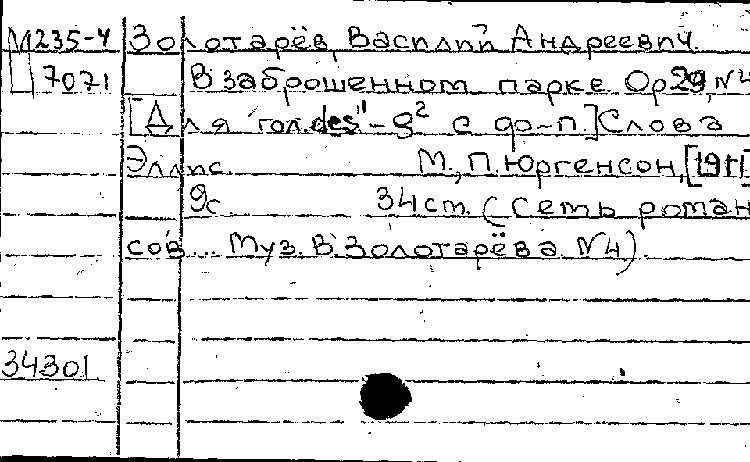 М235-4 Золотарёв, Василий Андреевич.
7071 В заброшенном парке. Ор 29, №4
[Для гол. des¹¹-g² с ф-п.] Слова
Эллис. М., П. Юргенсон, [1911]
9с. 34 ст. (Семь роман
сов... Муз. В. Золотарёва. №4).
34301